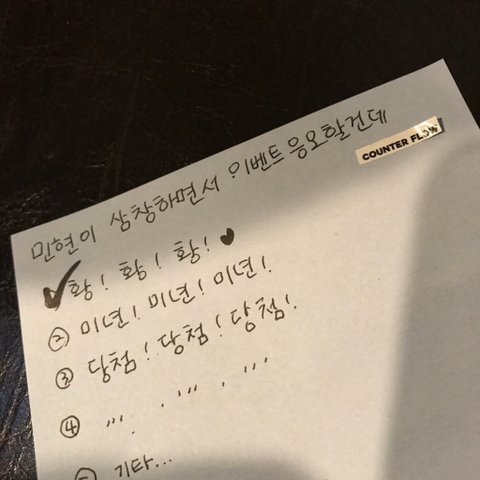 민현이 삼창하면서 이벤트 응모할건데
COUNTER FLOW
✔ 황! 황! 황! ♥
② 미년! 미년! 미년!
③ 당첨! 당첨! 당첨!
④ ,,,. .,,, . ,,,
⑤ 기타...